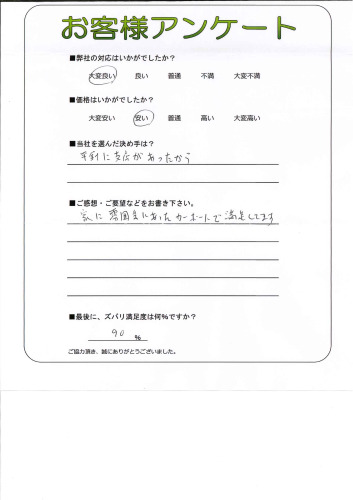 お客様アンケート
■弊社の対応はいかがでしたか？
大変良い 良い 普通 不満 大変不満
■価格はいかがでしたか？
大変安い 安い 普通 高い 大変高い
■当社を選んだ決め手は？
があったから
■ご感想・ご要望などをお書き下さい。
家に雰囲気にあったカーポートで満足してます
■最後に、ズバリ満足度は何％ですか？
90 ％
ご協力頂き、誠にありがとうございました。